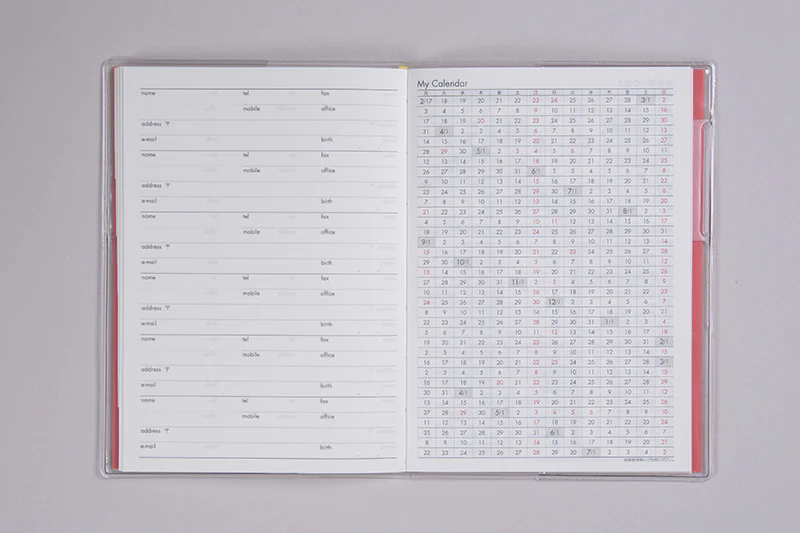 name tel fax
mobile office
address 〒
e-mail birth
name tel fax
mobile office
address 〒
e-mail birth
name tel fax
mobile office
address 〒
e-mail birth
name tel fax
mobile office
address 〒
e-mail birth
name tel fax
mobile office
address 〒
e-mail birth
name tel fax
mobile office
address 〒
e-mail birth
My Calendar
月 火 水 木 金 土 日 月 火 水 木 金 土 日
2/17 18 19 20 21 22 23 24 25 26 27 28 3/1 2
3 4 5 6 7 8 9 10 11 12 13 14 15 16
17 18 19 20 21 22 23 24 25 26 27 28 29 30
31 4/1 2 3 4 5 6 7 8 9 10 11 12 13
14 15 16 17 18 19 20 21 22 23 24 25 26 27
28 29 30 5/1 2 3 4 5 6 7 8 9 10 11
12 13 14 15 16 17 18 19 20 21 22 23 24 25
26 27 28 29 30 31 6/1 2 3 4 5 6 7 8
9 10 11 12 13 14 15 16 17 18 19 20 21 22
23 24 25 26 27 28 29 30 7/1 2 3 4 5 6
7 8 9 10 11 12 13 14 15 16 17 18 19 20
21 22 23 24 25 26 27 28 29 30 31 8/1 2 3
4 5 6 7 8 9 10 11 12 13 14 15 16 17
18 19 20 21 22 23 24 25 26 27 28 29 30 31
9/1 2 3 4 5 6 7 8 9 10 11 12 13 14
15 16 17 18 19 20 21 22 23 24 25 26 27 28
29 30 10/1 2 3 4 5 6 7 8 9 10 11 12
13 14 15 16 17 18 19 20 21 22 23 24 25 26
27 28 29 30 31 11/1 2 3 4 5 6 7 8 9
10 11 12 13 14 15 16 17 18 19 20 21 22 23
24 25 26 27 28 29 30 12/1 2 3 4 5 6 7
8 9 10 11 12 13 14 15 16 17 18 19 20 21
22 23 24 25 26 27 28 29 30 31 1/1 2 3 4
5 6 7 8 9 10 11 12 13 14 15 16 17 18
19 20 21 22 23 24 25 26 27 28 29 30 31 2/1
2 3 4 5 6 7 8 9 10 11 12 13 14 15
16 17 18 19 20 21 22 23 24 25 26 27 28 3/1
2 3 4 5 6 7 8 9 10 11 12 13 14 15
16 17 18 19 20 21 22 23 24 25 26 27 28 29
30 31 4/1 2 3 4 5 6 7 8 9 10 11 12
13 14 15 16 17 18 19 20 21 22 23 24 25 26
27 28 29 30 5/1 2 3 4 5 6 7 8 9 10
11 12 13 14 15 16 17 18 19 20 21 22 23 24
25 26 27 28 29 30 31 6/1 2 3 4 5 6 7
8 9 10 11 12 13 14 15 16 17 18 19 20 21
22 23 24 25 26 27 28 29 30 7/1 2 3 4 5